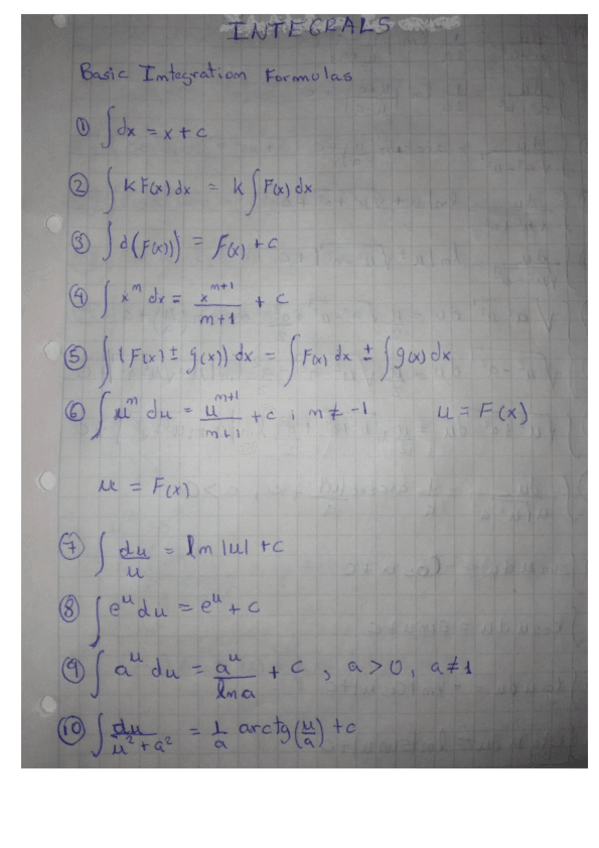 INTEGRALS
Basic Integration Formulas
① ∫dx = x + c
② ∫ K F(x) dx = K ∫ F(x) dx
③ ∫ d(F(x)) = F(x) + c
④ ∫ x^n dx = x^(n+1)/(n+1) + c
⑤ ∫ (F(x) ± g(x)) dx = ∫ F(x) dx ± ∫ g(x) dx
⑥ ∫ u^n du = u^(n+1)/(n+1) + c ; n ≠ -1 u = F(x)
u = F(x)
⑦ ∫ du/u = ln |u| + c
⑧ ∫ e^u du = e^u + c
⑨ ∫ a^u du = a^u/ln a + c , a > 0, a ≠ 1
⑩ ∫ du/(u² + a²) = 1/a arctg(u/a) + c